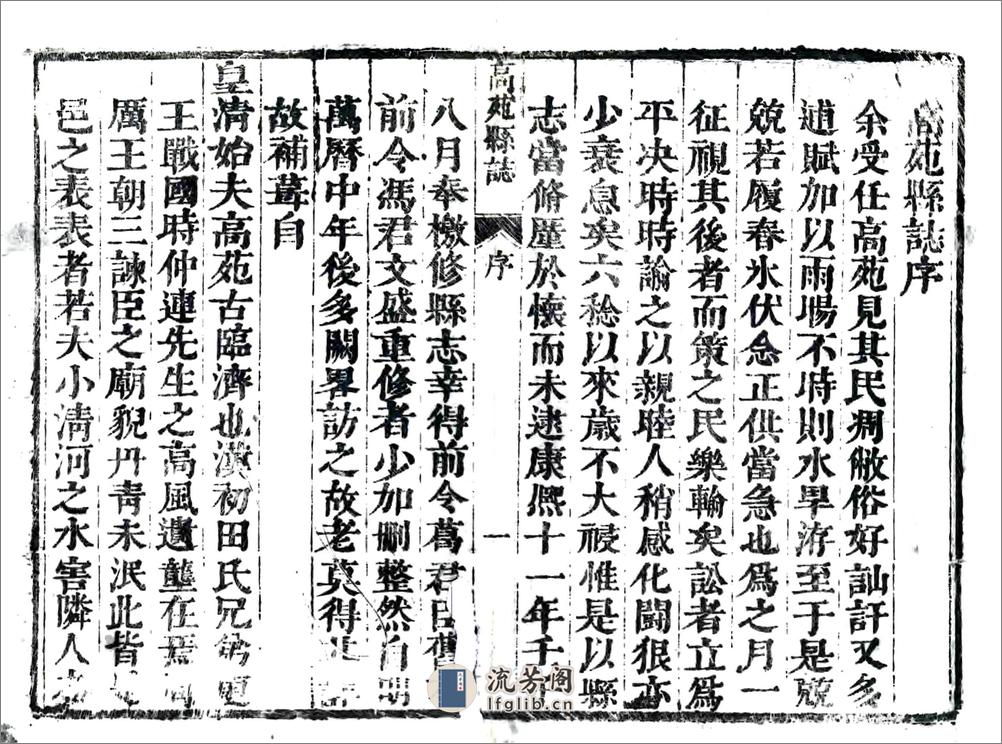 高苑縣誌序
余受任高苑見其民凋敝俗好訕訐又多
逋賦加以雨暘不時則水旱洊至于是兢
兢若履春氷伏念正供當急也爲之月一
征視其後者而策之民樂輸矣訟者立爲
平决時時諭之以親睦人稍感化鬪狠亦
少衰息矣六稔以來歲不大祲惟是以縣
志當脩歷於懷而未逮康熈十一年
高苑縣誌
序
一
八月奉檄修縣志幸得前令葛君舊
前令馮君文盛重修者少加刪整然自明
萬曆中年後多闕畧訪之故老莫得其
故補葺自
皇清始夫高苑古臨濟也漢初田氏兄弟更
王戰國時仲連先生之高風遺壟在焉
厲王朝三諫臣之廟貌丹青未泯此皆
邑之表表者若夫小清河之水害隣人
流芳阁
lfglib.cn